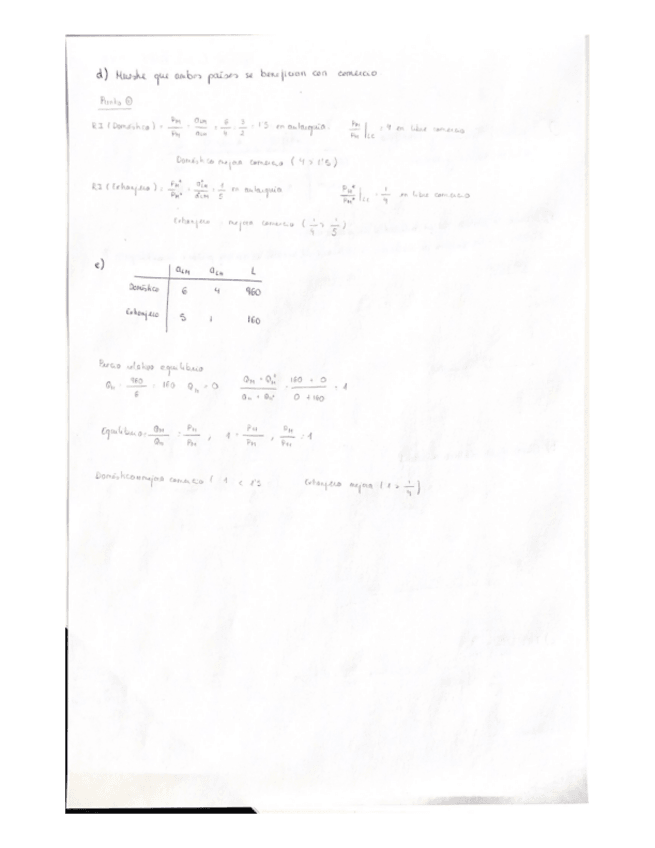 d) Muestre que ambos países se benefician con comercio
Punto ①
RI (Doméstico) = PM/PN = aLM/aLN = 6/4 = 3/2 = 1'5 en autarquía PM/PN |LC = 4 en libre comercio
Doméstico mejora comercio (4 > 1'5)
RI (Extranjero) = PN*/PM* = a*LN/a*LM = 1/5 en autarquía PN*/PM* |LC = 1/4 en libre comercio
Extranjero mejora comercio (1/4 > 1/5)
e)
aLM aLN L
Doméstico 6 4 960
Extranjero 5 1 160
Precio relativo equilibrio
QM = 960/6 = 160 QN = 0 QM + QM*/QN + QN* = 160 + 0/0 + 160 = 1
Equilibrio: QM/QN = PN/PM , 1 = PN/PM , PM/PN = 1
Doméstico mejora comercio ( 1 < 1'5 Extranjero mejora (1 > 1/4)